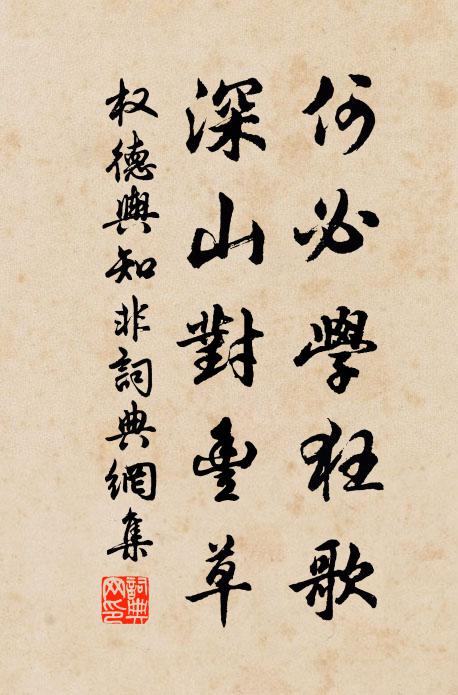 何必學狂歌
深山對豊草
权德輿知非詞典網集
詞典网印